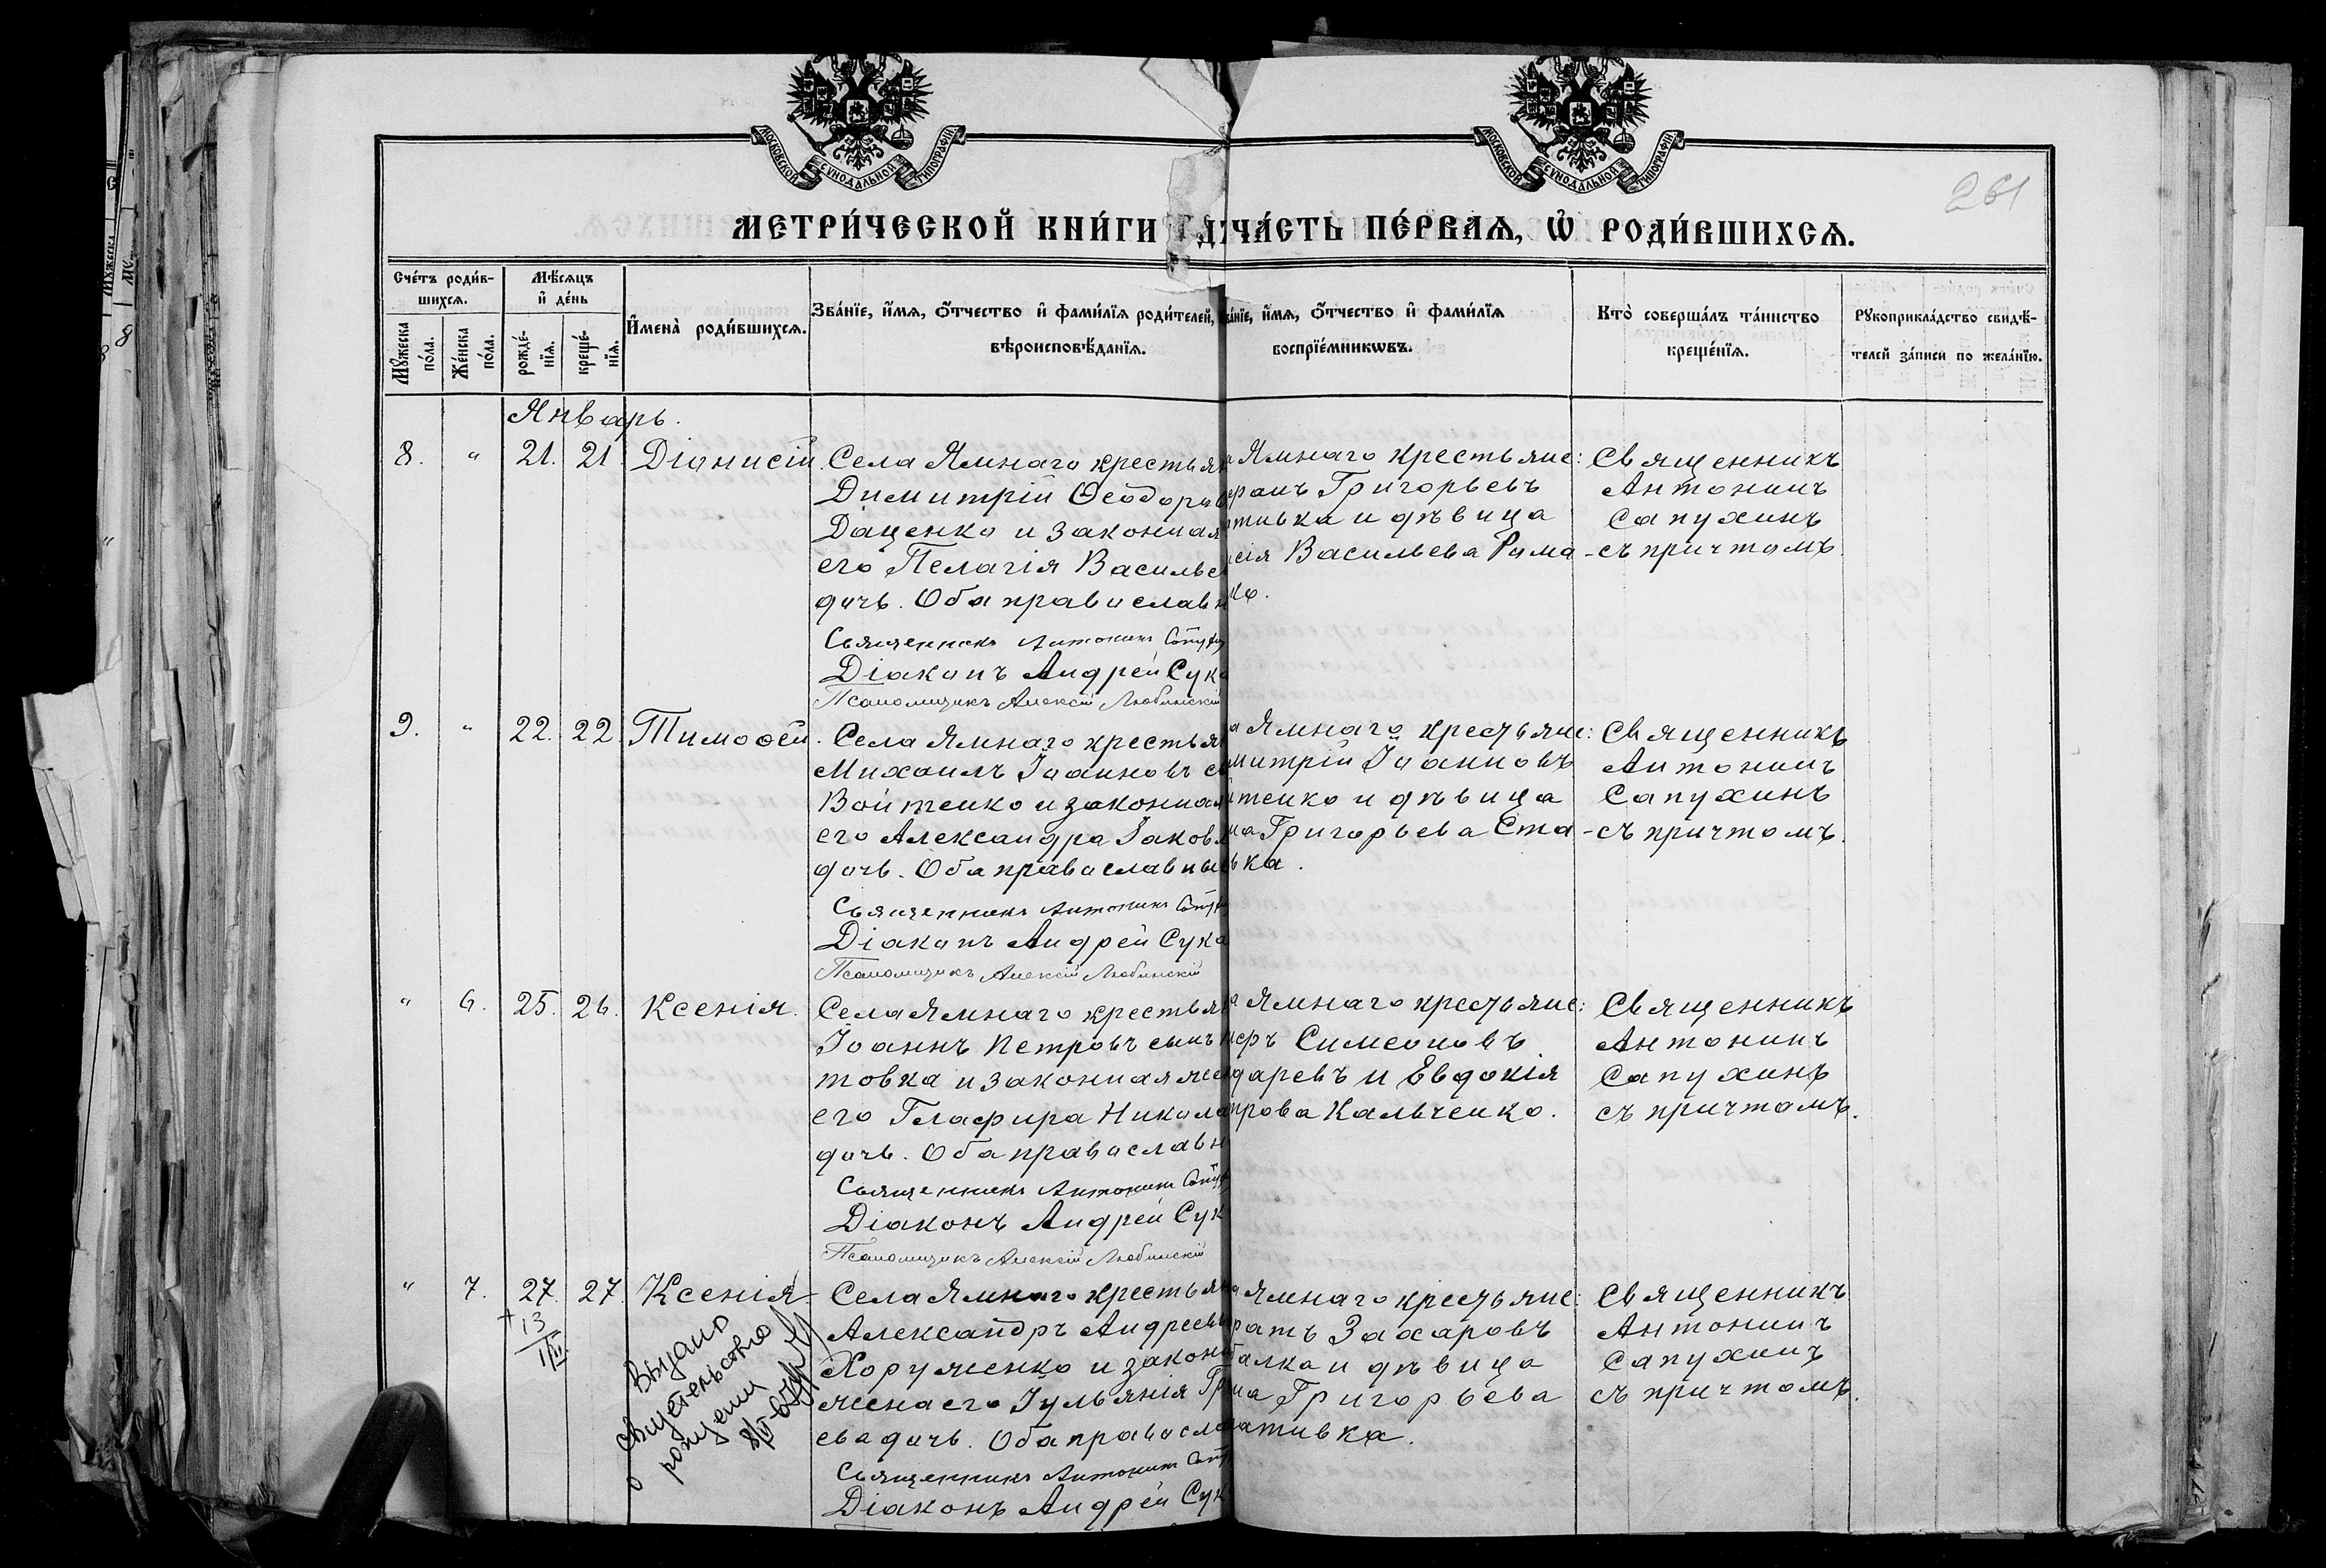 МОСКОВСКОЙ СѴНОДАЛЬНОЙ ТИПОГРАФІИ
МОСКОВСКОЙ СѴНОДАЛЬНОЙ ТИПОГРАФІИ
261
МЕТРИ́ЧЕСКОЙ КНИ́ГИ
ЧА́СТЬ ПЕ́РВАѦ, Ѡ҆ РОДИ́ВШИХСѦ.
Сче́тъ роди́в-
шихся.
Мꙋ́жеска по́ла.
Же́нска по́ла.
Мѣ́сяцъ
и҆ де́нь
рожде́-нїѧ.
креще́-нїѧ.
И҆мена̀ роди́вшихсѧ.
Зва́нїе, и҆́мѧ, ѻ҆́тчество и҆ фами́лїѧ роди́телей,
вѣроисповѣ́данїѧ.
ва́нїе, и҆́мѧ, ѻ҆́тчество и҆ фами́лїѧ
воспрїе́мникѡвъ.
Кто̀ соверша́лъ та́инство
креще́нїѧ.
Рꙋкоприкла́дство свидѣ́-
телей за́писи по жела́нїю.
Январь.
8. " 21. 21 Діонисій.
Села Ямнаго крестьян
Димитрій Ѳеодоров
Даценко и законная
его Пелагія Василье
дочь. Оба православн
Священникъ Антонинъ
Діаконъ Андрей Сук
Псаломщикъ Алексій Любинскій
а Ямнаго крестьяне:
фанъ Григорьевъ
тивка и дѣвица
сія Васильева Рома-
ко.
Священникъ
Антонинъ
Сапухинъ
съ причтомъ.
9. " 22. 22 Тимоѳей.
Села Ямнаго крестьян
Михаилъ Іоанновъ с
Войтенко и законная
его Александра Іаковл
дочь. Оба православные
Священникъ Антонинъ
Діаконъ Андрей Сук
Псаломщикъ Алексій Любинскій
а Ямнаго крестьяне:
митрій Іоанновъ
тенко и дѣвица
на Григорьева Ста-
ка.
Священникъ
Антонинъ
Сапухинъ
съ причтомъ.
" 6. 25. 26. Ксенія.
Села Ямнаго крестьян
Іоаннъ Петровъ сынъ
товка и законная жен
его Глафира Никола
дочь. Оба православн
Священникъ Антонинъ
Діаконъ Андрей Сук
Псаломщикъ Алексій Любинскій
а Ямнаго крестьяне:
Симеоновъ
даревъ и Евдокія
трова Кальченко.
Священникъ
Антонинъ
Сапухинъ
съ причтомъ.
" 7. 27. 27. Ксенія.
+ 13
III
Выдано
свидетельство
о рождении
Села Ямнаго крестьян
Александръ Андреевъ
Хоруженко и законн
жена его Іульянія Гр
ева дочь. Оба правосла
Священникъ Антонинъ
Діаконъ Андрей Сук
а Ямнаго крестьяне:
ратъ Захаровъ
балка и дѣвица
на Григорьева
ативка.
Священникъ
Антонинъ
Сапухинъ
съ причтомъ.